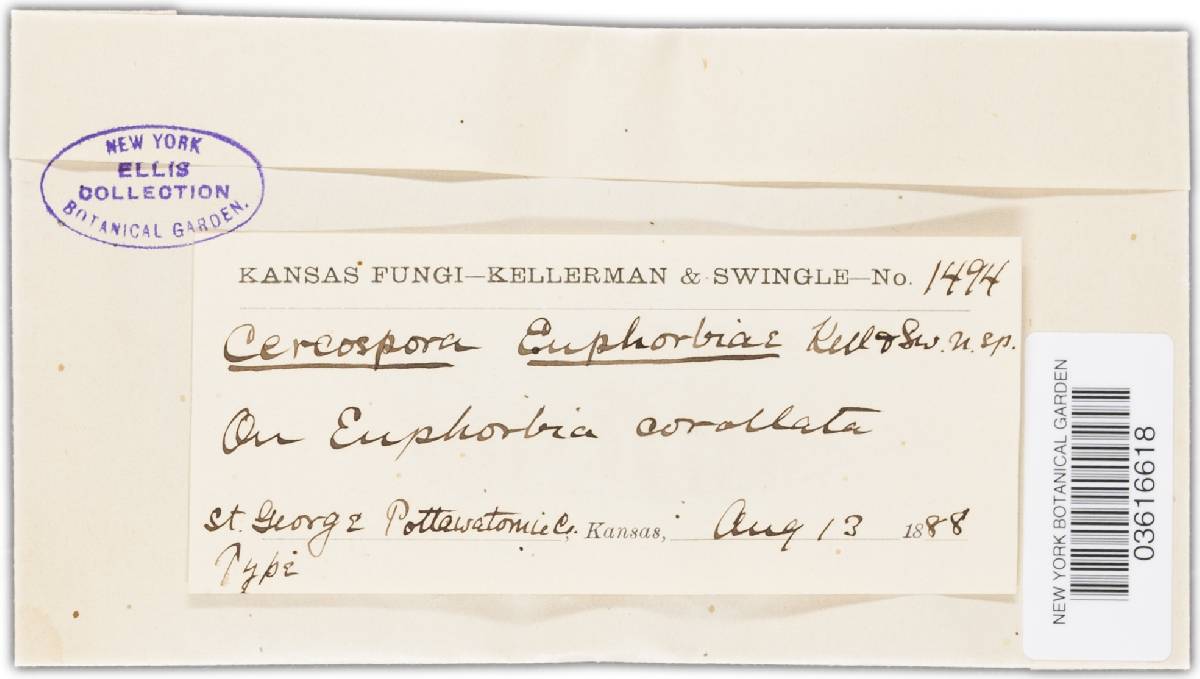 NEW YORK
ELLIS
COLLECTION
BOTANICAL GARDEN.
KANSAS FUNGI—KELLERMAN & SWINGLE—No. 1494
Cercospora Euphorbiae Kell & Sw. n. sp.
On Euphorbia corollata
St. George Pottawatomie Co., Kansas, Aug 13 1888
Type
NEW YORK BOTANICAL GARDEN
03616618